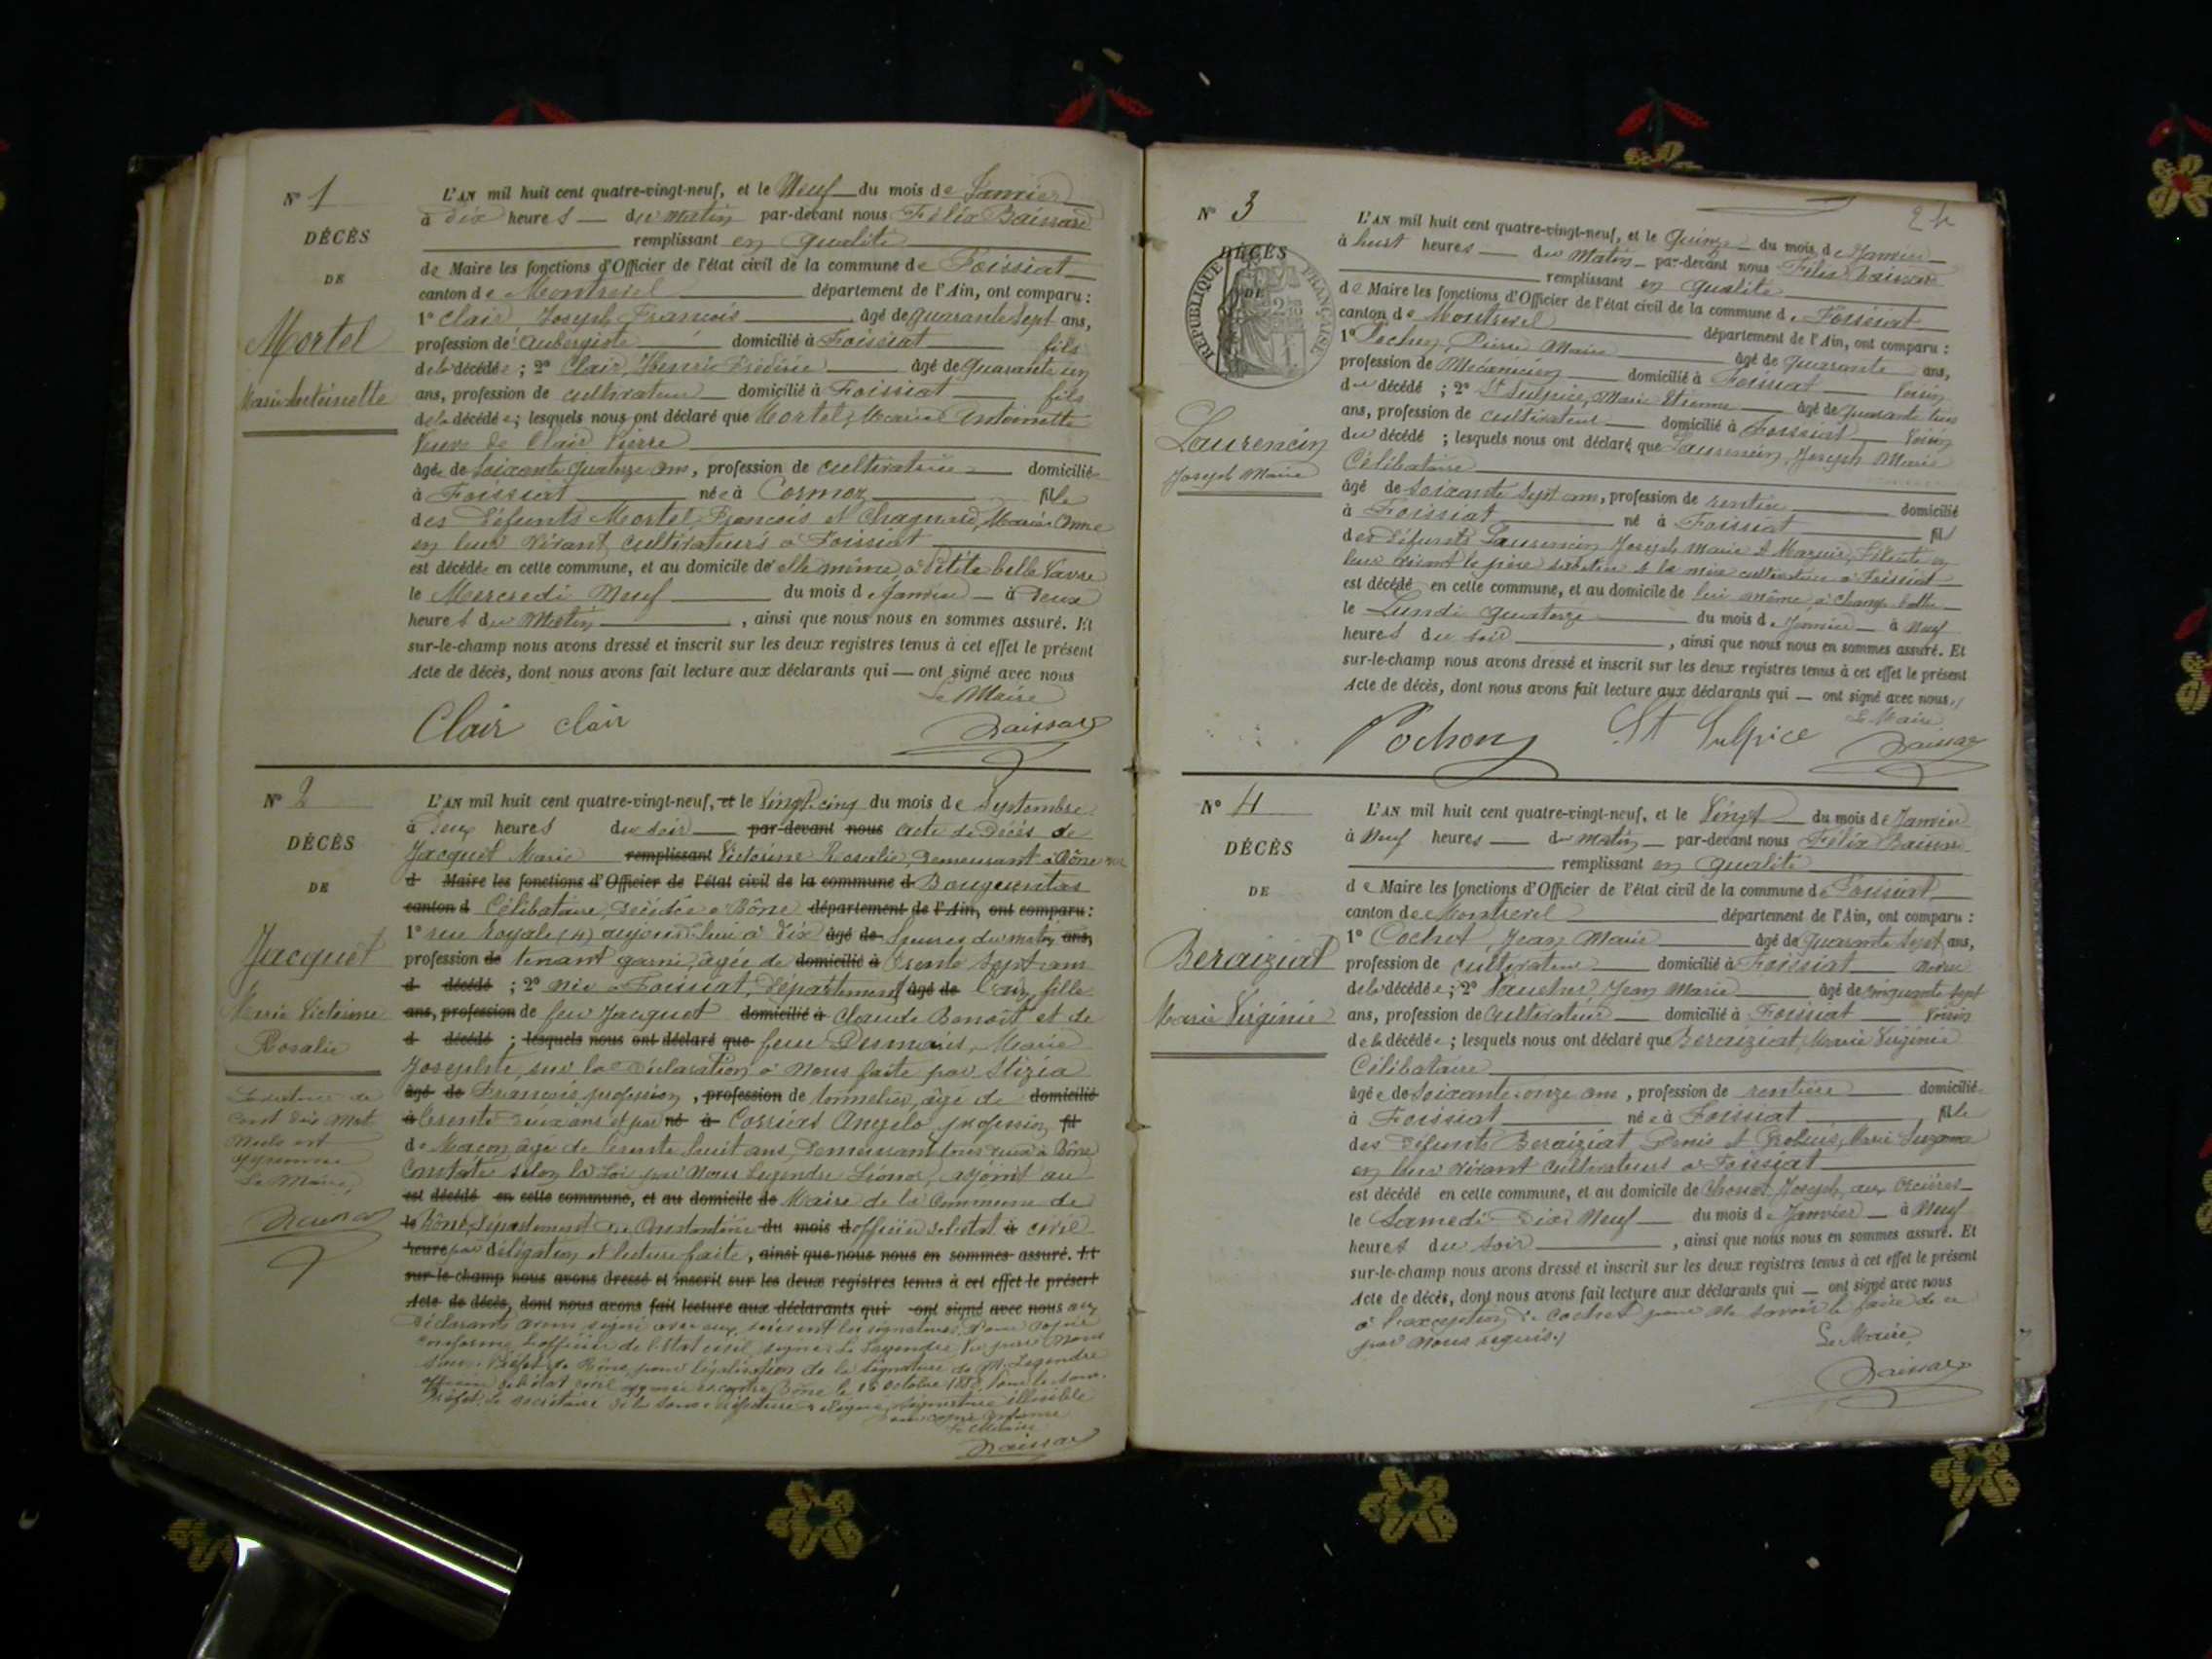 N° 1
DÉCÈS
DE
Mortel
Marie Antoinette
L'AN mil huit cent quatre-vingt-neuf, et le Neuf du mois de Janvier
à dix heures du matin par-devant nous Félix Baissard
remplissant en qualité
de Maire les fonctions d'Officier de l'état civil de la commune de Foissiat
canton de Montrevel département de l'Ain, ont comparu :
1° Clair Joseph François âgé de quarante sept ans,
profession de aubergiste domicilié à Foissiat fils
de la décédée ; 2° Clair, Henri Frédéric âgé de quarante un
ans, profession de cultivateur domicilié à Foissiat fils
de la décédée ; lesquels nous ont déclaré que Mortel, Marie Antoinette
Veuve de Clair Pierre
âgée de soixante quatorze ans, profession de cultivatrice domiciliée
à Foissiat née à Cormoz fille
des défunts Mortel François et Chagnard, Marie Anne
en leur vivant cultivateurs à Foissiat
est décédée en cette commune, et au domicile de elle même, à Petite belle Vavre
le Mercredi Neuf du mois de Janvier à deux
heures du Matin , ainsi que nous nous en sommes assuré. Et
sur-le-champ nous avons dressé et inscrit sur les deux registres tenus à cet effet le présent
Acte de décès, dont nous avons fait lecture aux déclarants qui ont signé avec nous
Le Maire
Clair clair Baissard
N° 2
DÉCÈS
DE
Jacquet
Marie Victorine
Rosalie
L'AN mil huit cent quatre-vingt-neuf, et le Vingt cinq du mois de Septembre
à deux heures du soir par-devant nous acte de décès de
Jacquet Marie remplissant Victorine Rosalie, demeurant à Bône
d Maire les fonctions d'Officier de l'état civil de la commune d
canton d Célibataire, décédée à Bône département de l'Ain, ont comparu :
1° rue Royale (4) aujourd'hui à dix âgé de heures du matin ans,
profession de tenant garni, âgée de domicilié à trente sept ans
d décédé ; 2° née à Foissiat, Département âgé de l'ain, fille
ans, profession de feu Jacquet domicilié à Claude Benoît et de
d décédé ; lesquels nous ont déclaré que feue Desmaris, Marie
Josephte, sur la déclaration à Nous faite par
âgé de François, profession , profession de tonnelier, âgé de domicilié
à trente deux ans et par né à Angelo, profession fil
de Maçon âgé de trente huit ans, demeurant tous deux à Bône
Constaté selon la Loi par Nous Legendre adjoint au
est décédé en cette commune, et au domicile de Maire de la Commune de
le Bône, département de Constantine du mois d officier de l'état à civil
heure par délégation et lecture faite , ainsi que nous nous en sommes assuré. Et
sur-le-champ nous avons dressé et inscrit sur les deux registres tenus à cet effet le présent
Acte de décès, dont nous avons fait lecture aux déclarants qui ont signé avec nous aux
déclarants avons signé avec eux, suivent les signatures. Pour copie
conforme L'officier de l'état civil signé : Legendre Vu par Nous
Sous Préfet de Bône, pour légalisation de la signature de M. Legendre
officier de l'état civil Bône le 16 octobre Pour le Sous-
Préfet. Le secrétaire de la Sous-Préfecture signé, signature illisible
Pour copie conforme
Le Maire
Baissard
La rature de
cent dix mots
nuls est
approuvée
Le Maire,
Baissard
24
N° 3
DÉCÈS
DE
RÉPUBLIQUE FRANÇAISE
Laurencin
Joseph Marie
L'AN mil huit cent quatre-vingt-neuf, et le Quinze du mois de Janvier
à huit heures du Matin par-devant nous Félix Baissard
remplissant en qualité
de Maire les fonctions d'Officier de l'état civil de la commune de Foissiat
canton de Montrevel département de l'Ain, ont comparu :
1° Pochon, Pierre Marie âgé de quarante ans,
profession de Mécanicien domicilié à Foissiat Voisin
du décédé ; 2° St Sulpice, Marie Etienne âgé de quarante
ans, profession de cultivateur domicilié à Foissiat Voisin
du décédé ; lesquels nous ont déclaré que Laurencin, Joseph Marie
Célibataire
âgé de soixante sept ans, profession de rentier domicilié
à Foissiat né à Foissiat fils
des défunts Laurencin Joseph Marie et en
leur vivant le père et la mère à Foissiat
est décédé en cette commune, et au domicile de lui même à
le Lundi quatorze du mois de Janvier à Neuf
heures du soir , ainsi que nous nous en sommes assuré. Et
sur-le-champ nous avons dressé et inscrit sur les deux registres tenus à cet effet le présent
Acte de décès, dont nous avons fait lecture aux déclarants qui ont signé avec nous.
Le Maire
Pochon St Sulpice Baissard
N° 4
DÉCÈS
DE
Beraiziat
Marie Virginie
L'AN mil huit cent quatre-vingt-neuf, et le Vingt du mois de Janvier
à Neuf heures du matin par-devant nous Félix Baissard
remplissant en qualité
de Maire les fonctions d'Officier de l'état civil de la commune de Foissiat
canton de Montrevel département de l'Ain, ont comparu :
1° Cochet, Jean Marie âgé de quarante sept ans,
profession de cultivateur domicilié à Foissiat neveu
de la décédée ; 2° Jean Marie âgé de cinquante sept
ans, profession de Cultivateur domicilié à Foissiat Voisin
de la décédée ; lesquels nous ont déclaré que Beraiziat, Marie Virginie
Célibataire
âgée de soixante-onze ans , profession de rentière domiciliée
à Foissiat née à Foissiat fille
des défunts Beraiziat Denis et Marie Suzanne
en leur vivant cultivateurs à Foissiat
est décédé en cette commune, et au domicile de Joseph, aux
le Samedi Dix Neuf du mois de Janvier à Neuf
heures du soir , ainsi que nous nous en sommes assuré. Et
sur-le-champ nous avons dressé et inscrit sur les deux registres tenus à cet effet le présent
Acte de décès, dont nous avons fait lecture aux déclarants qui ont signé avec nous
à l'exception de Cochet pour ne savoir le faire de ce
par Nous requis.
Le Maire
Baissard